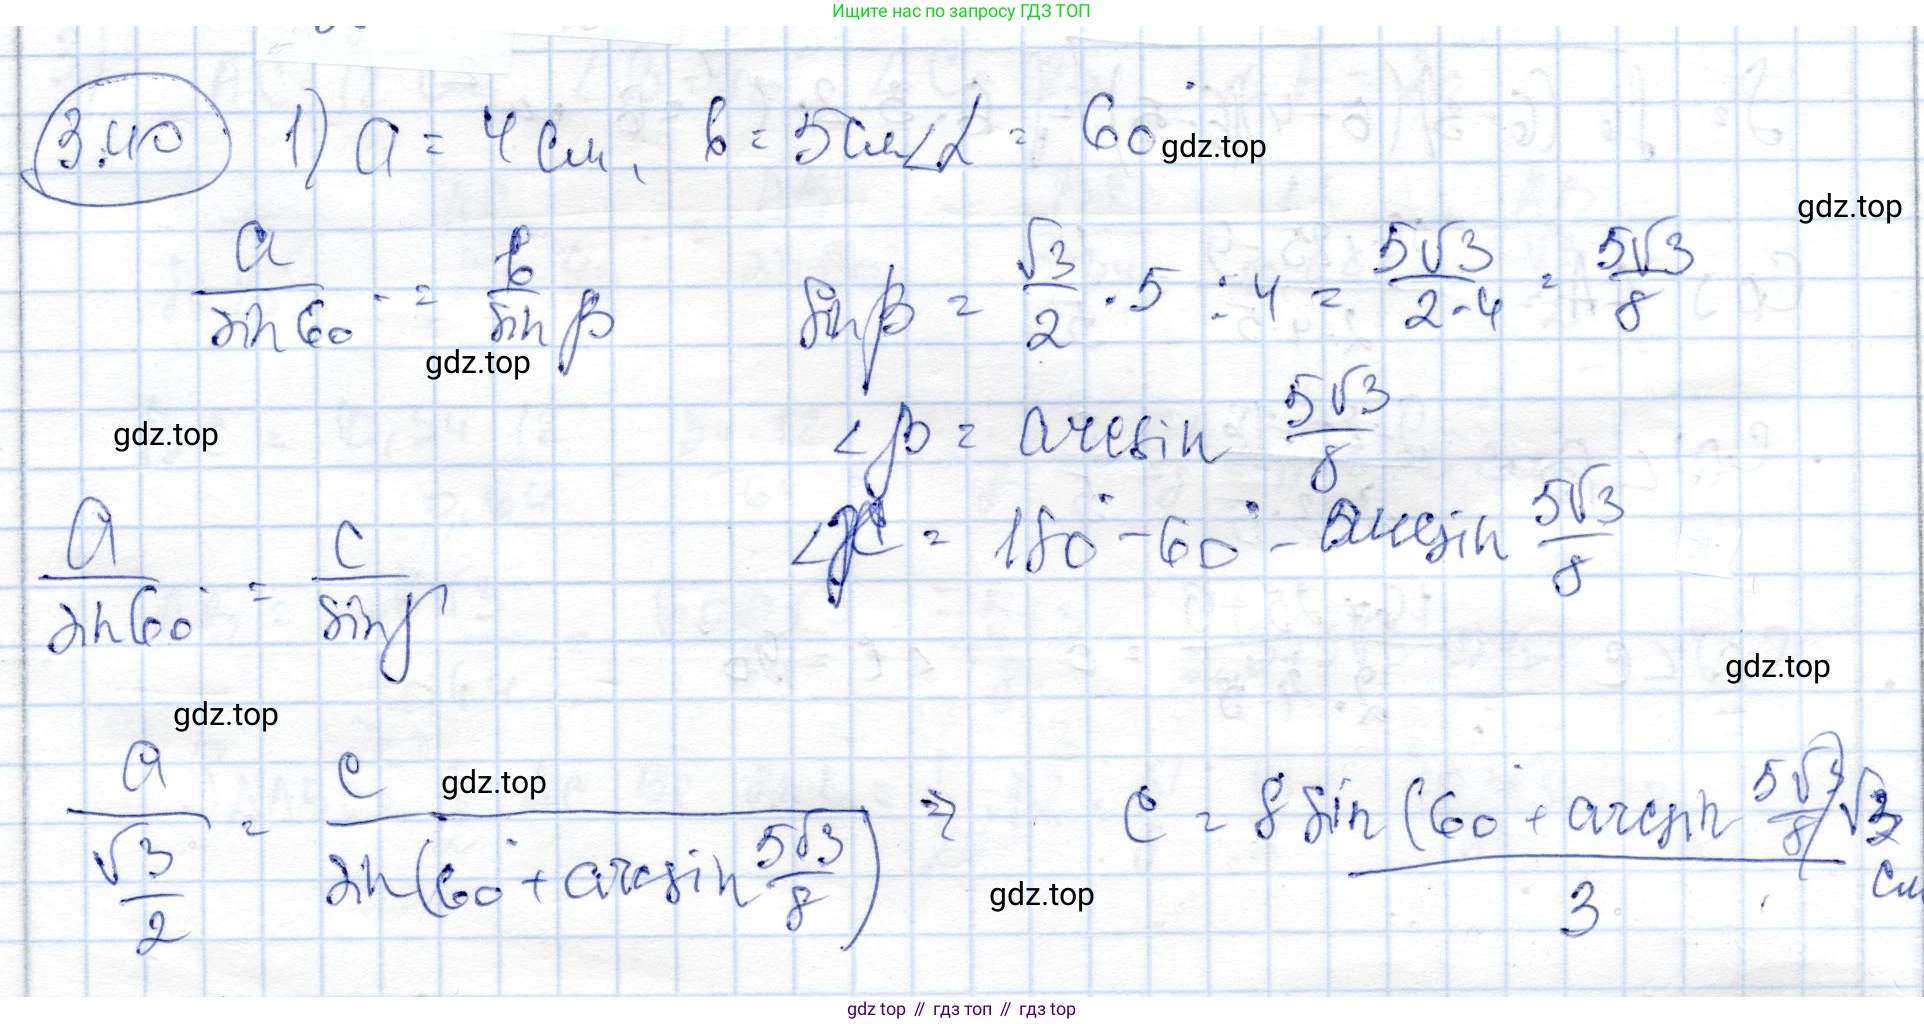 Ищите нас по запросу ГДЗ ТОП
3.40 1) a = 4 см, b = 5 см ∠α = 60°
gdz.top
gdz.top
a/sin 60° = b/sin β sin β = √3/2 · 5 ÷ 4 = 5√3/2·4 = 5√3/8
gdz.top
∠β = arcsin 5√3/8
gdz.top
a/sin 60° = c/sin γ = 180° - 60° - arcsin 5√3/8
gdz.top
gdz.top
a/(√3/2) = c/sin(60° + arcsin 5√3/8) ⇒ c = 8 sin(60° + arcsin 5√3/8)√3/3 см
gdz.top
gdz.top
gdz top // гдз топ // гдз top